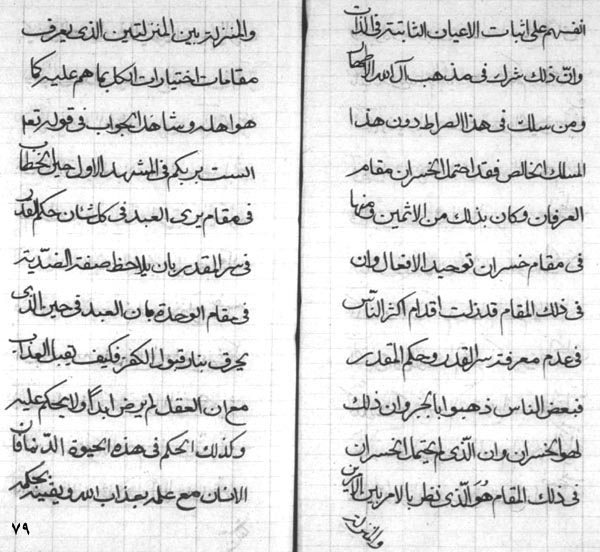 انفسهم علی اثبات الاعیان الثابتة فی الذات
وان ذلک شرک فی مذهب آل الله الاطهار
ومن سلک فی هذا الصراط دون هذا
المسلک الخالص فقد احتمل الخسران مقام
العرفان وکان بذلک من الاثمین ومنها
فی مقام خسران توحید الافعال وان
فی ذلک المقام قد زلت اقدام اکثر الناس
فی عدم معرفة سر القدر وحکم المقدر
فبعض الناس ذهبوا بالجبر وان ذلک
لهو الخسران وان الذی لم یحتمل الخسران
فی ذلک المقام هو الذی نظر بالامر بین الامرین
والمنزلة
والمنزلة بین المنزلتین الذی یعرف
مقامات اختیارات الکل بما هم علیه کما
هو اهله وشاهد الجواب فی قوله تعم
الست بربکم فی المشهد الاول حین الخطاب
فی مقام یری العبد فی کل شان حکم القدر
فی سر المقدر بان یلاحظ صفة الضدیة
فی مقام الوحدة بان العبد فی حین الذی
یحرق بنار قبول الکفر فکیف یقبل العذاب
مع ان العقل لم یرض ابداً ولا یحکم علیه
وکذلک الحکم فی هذه الحیوة الدنیا فان
الانسان مع علمه بعذاب الله ویقینه بحکمه
٧٩